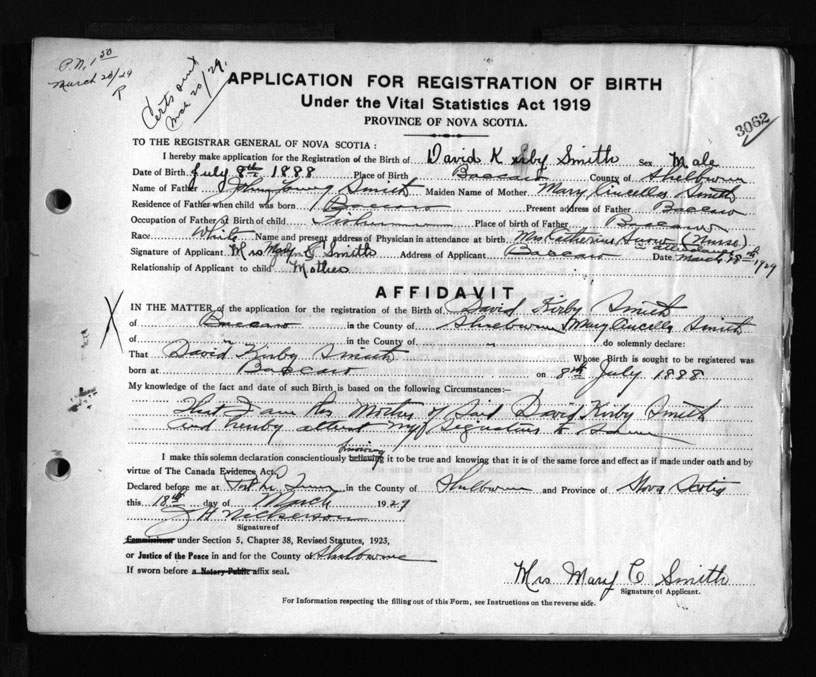 P.N. 1 50
March 20/29
R
Certs sent
Mar 20/29.
APPLICATION FOR REGISTRATION OF BIRTH
Under the Vital Statistics Act 1919
PROVINCE OF NOVA SCOTIA.
3062
TO THE REGISTRAR GENERAL OF NOVA SCOTIA :
I hereby make application for the Registration of the Birth of David Kirby Smith Sex Male
Date of Birth July 8th 1888 Place of Birth Baccaro County of Shelburne
Name of Father Smith Maiden Name of Mother Mary Smith
Residence of Father when child was born Baccaro Present address of Father Baccaro
Occupation of Father at Birth of child Fisherman Place of birth of Father Baccaro
Race White Name and present address of Physician in attendance at birth Mrs Catherine (Nurse)
Signature of Applicant Mrs Mary E Smith Address of Applicant Baccaro Date March 18th 1929
Relationship of Applicant to child Mother
AFFIDAVIT
X
IN THE MATTER of the application for the registration of Birth of David Kirby Smith
of Baccaro in the County of Shelburne Mary Smith
of " in the County of " do solemnly declare:
That David Kirby Smith Whose Birth is sought to be registered was
born at Baccaro on 8th July 1888
My knowledge of the fact and date of such Birth is based on the following Circumstances:—
That I am the Mother of Said David Kirby Smith
and hereby attest my Signature to Same
I make this solemn declaration conscientiously believing knowing it to be true and knowing that it is of the same force and effect as if made under oath and by
virtue of The Canada Evidence Act.
Declared before me at in the County of Shelburne and Province of Nova Scotia
this 18th day of March 1929
J H Nickerson
Signature of
Commissioner under Section 5, Chapter 38, Revised Statutes, 1923,
or Justice of the Peace in and for the County of Shelburne
If sworn before a Notary Public affix seal.
Mrs Mary E Smith
Signature of Applicant.
For Information respecting the filling out of this Form, see Instructions on the reverse side.